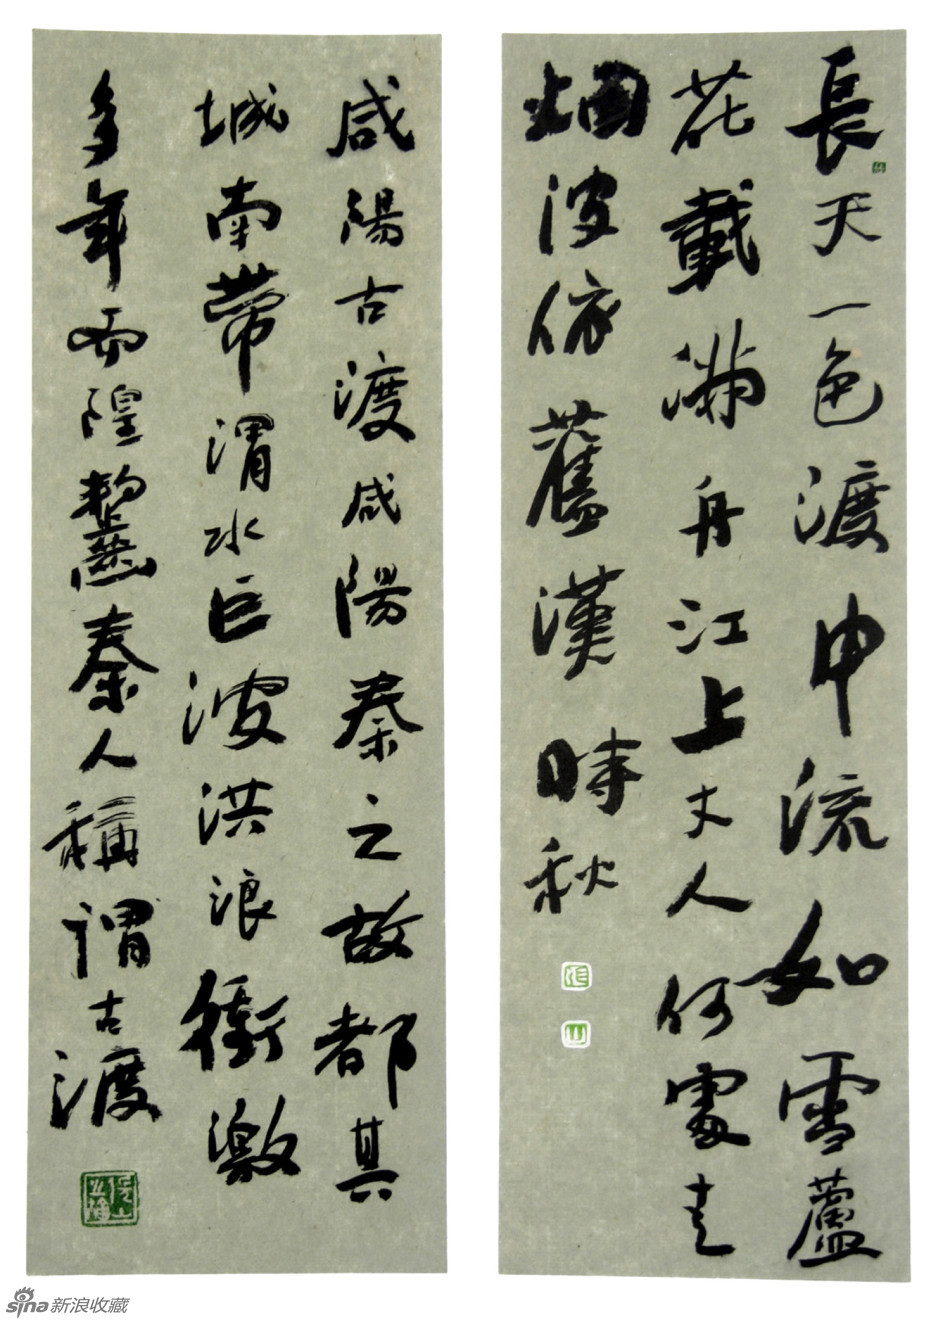 長天一色渡中流如雪蘆
花載滿舟江上丈人何處去
烟波依舊漢時秋
咸陽古渡咸陽秦之故都其
城南帶渭水巨波洪浪衝激
多年而隍秦人稱謂古渡
sina新浪收藏